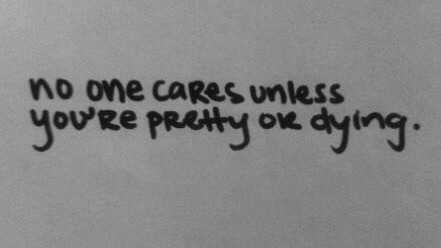 no one cares unless
you're pretty or dying.